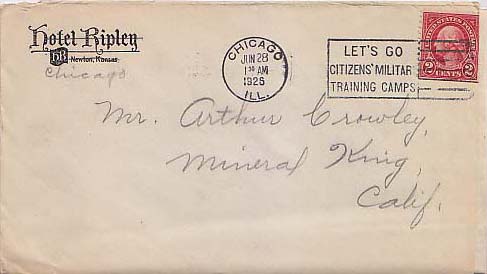 Hotel Ripley
HR Newton, Kansas
Chicago
CHICAGO
JUN 28
1926
ILL.
LET'S GO
CITIZENS' MILITARY
TRAINING CAMPS
UNITED STATES POSTAGE
2 CENTS 2
Mr. Arthur Crowley,
Mineral King,
Calif.